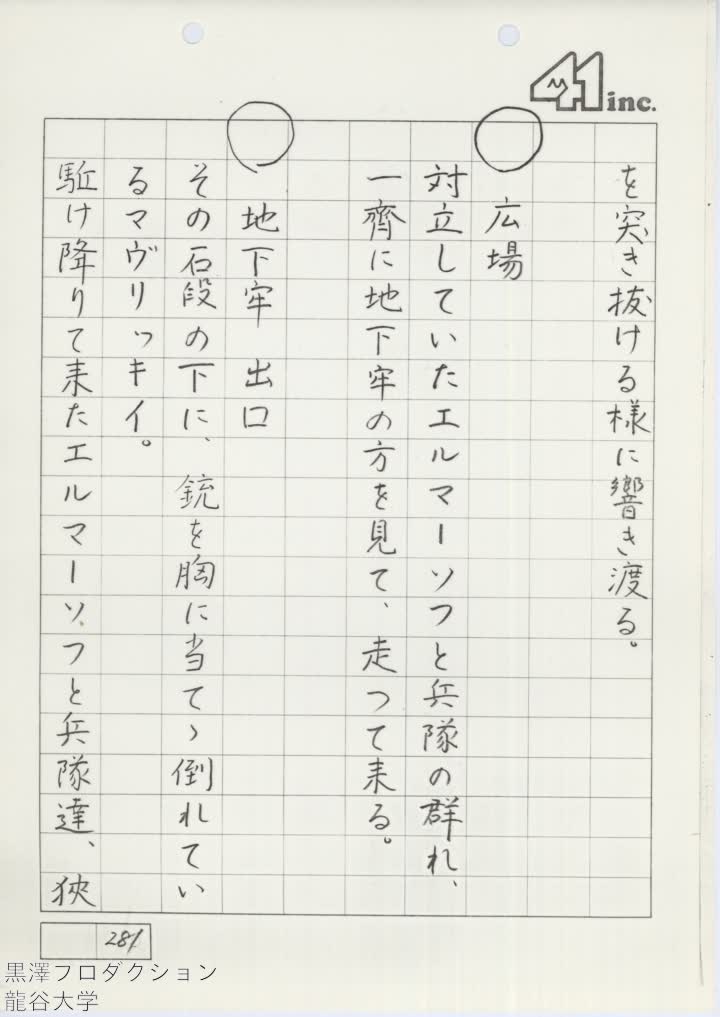 41 inc.
を突き抜ける様に響き渡る。
広場
対立していたエルマーソフと兵隊の群れ、
一齊に地下牢の方を見て、走つて来る。
地下牢 出口
その石段の下に、銃を胸に当てゝ倒れてい
るマヴリッキイ。
駈け降りて来たエルマーソフと兵隊達、狹
281
黒澤プロダクション
龍谷大学